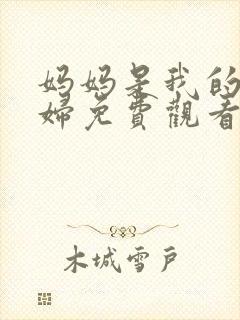 妈妈是我的
婦免費觀看
木城雪戶